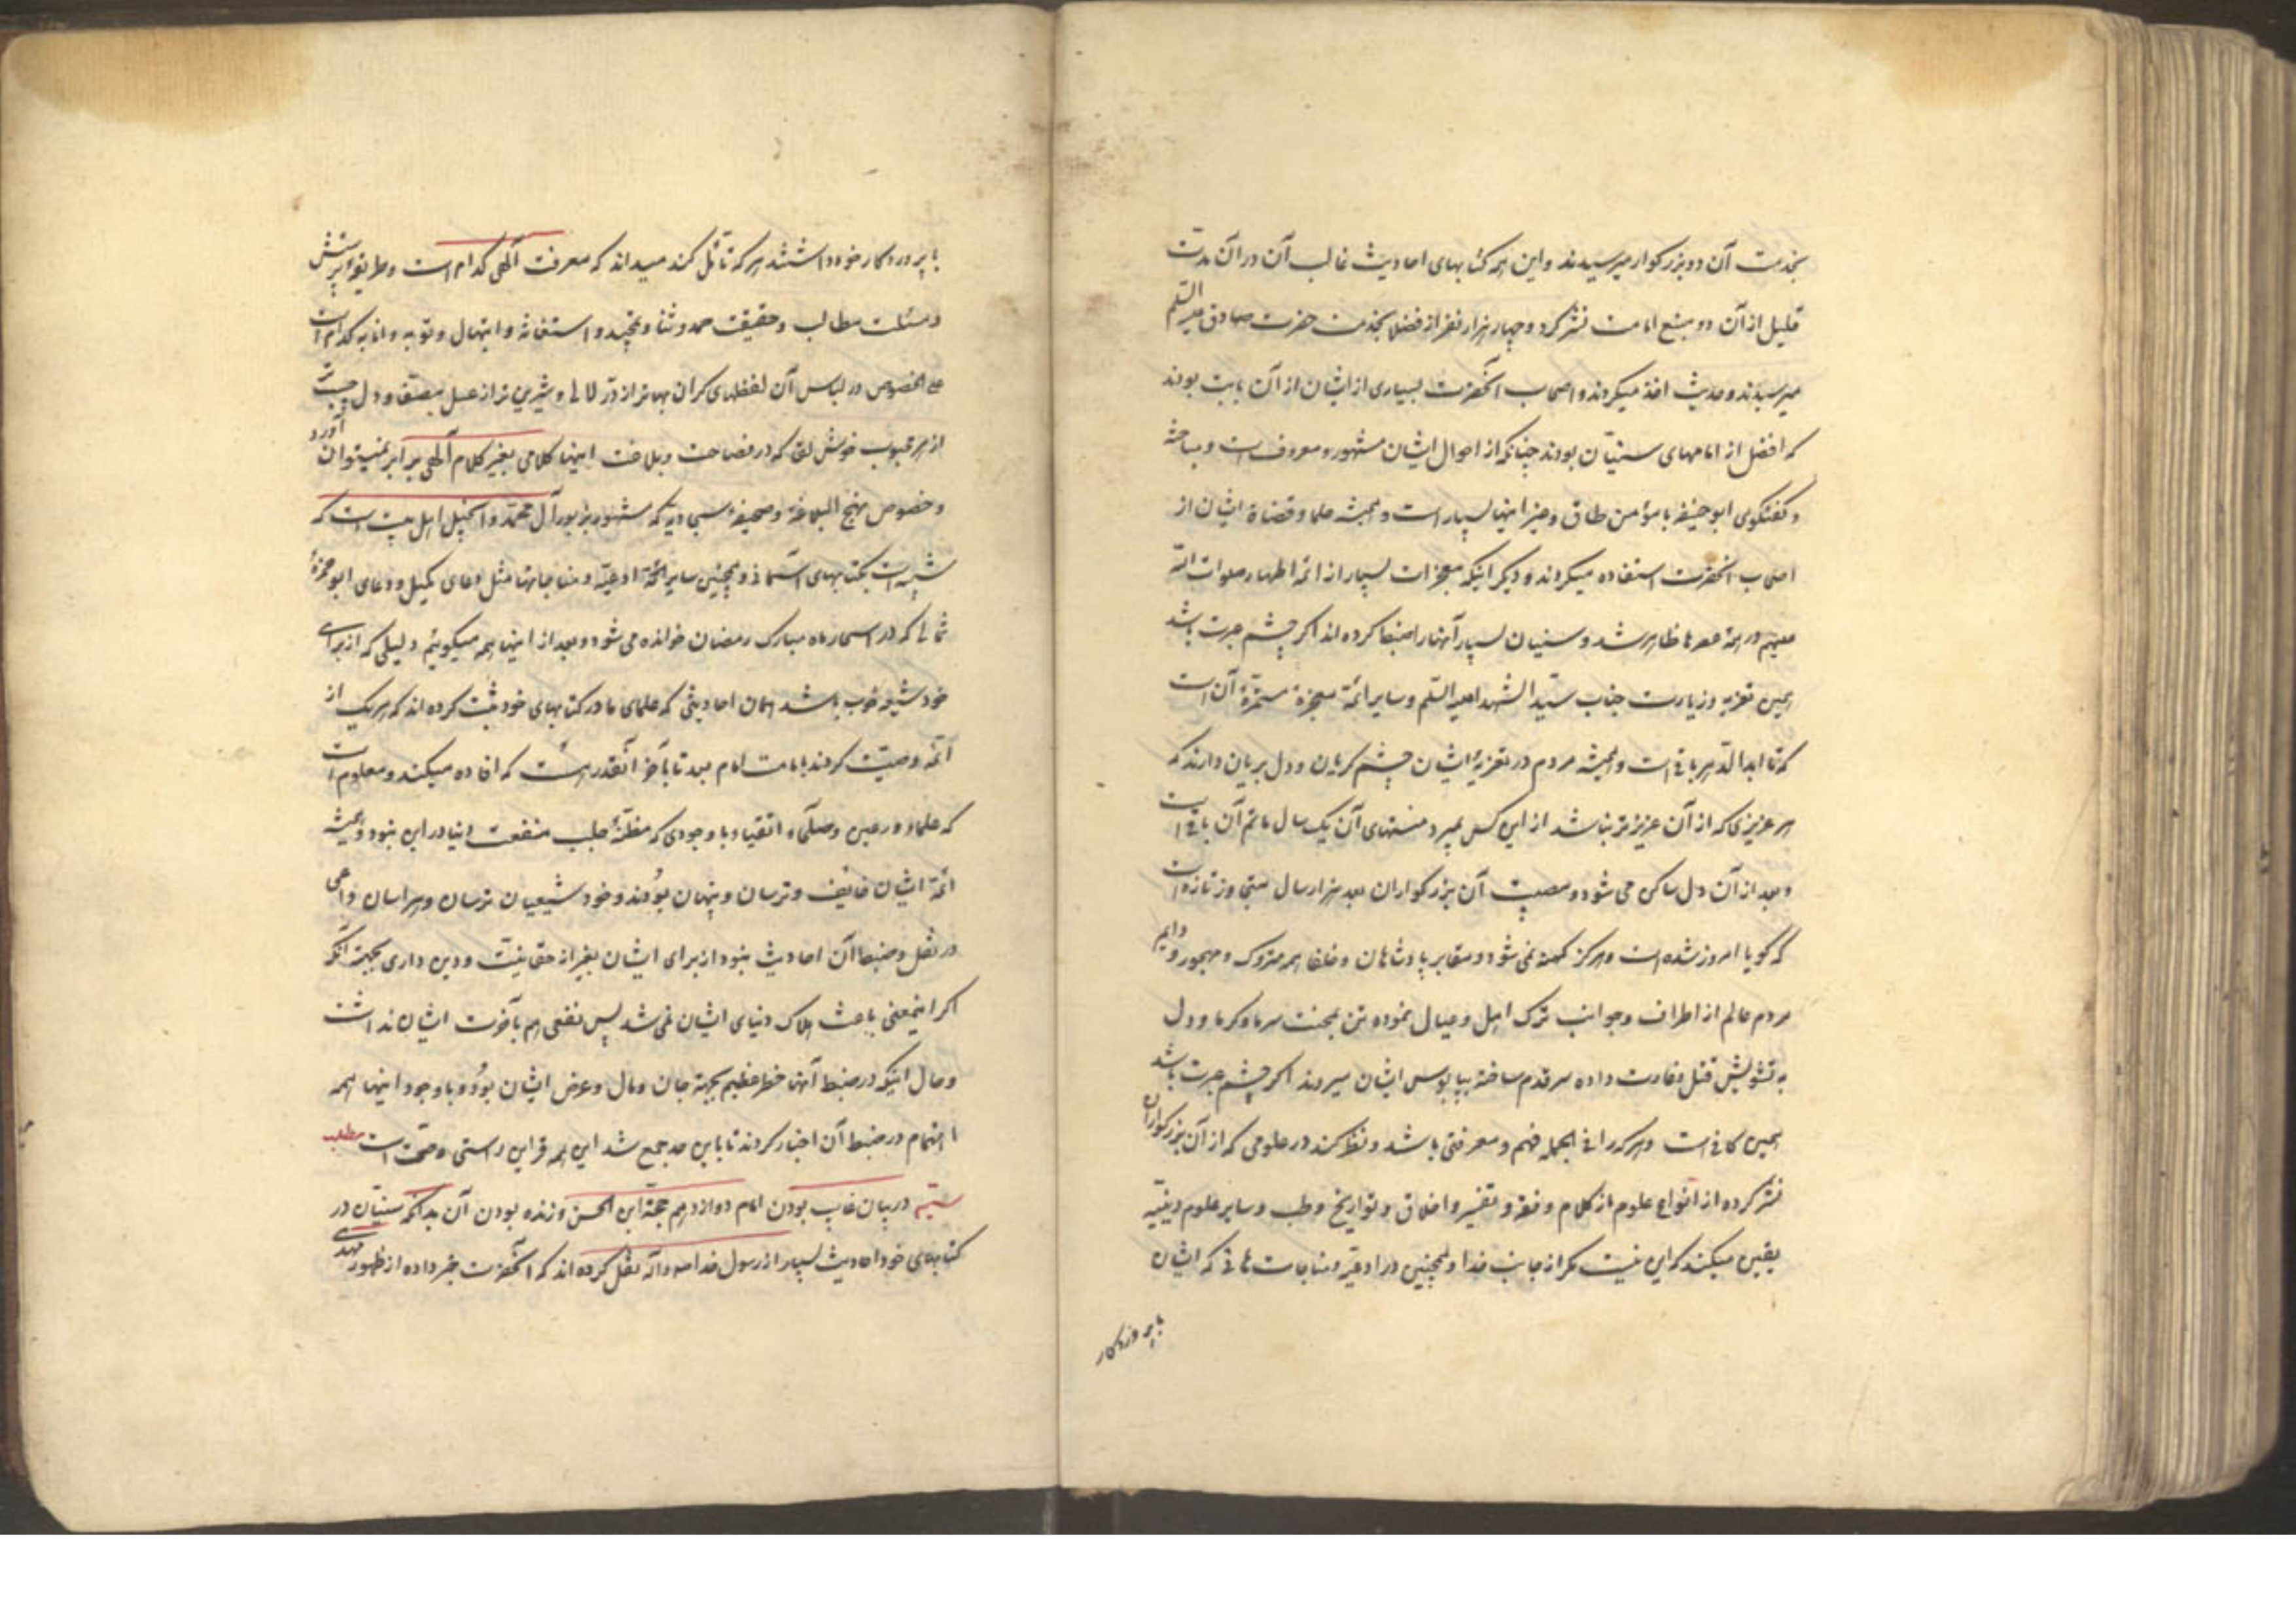 بخدمت آن دو بزرکوار میرسیدند و این همه کتابهای احادیث غالب آن در آن مدت
قلیل از آن دو منبع امامت نشر کرد و چهار هزار نفر از فضلا بخدمت حضرت صادق علیه السلم
میرسیدند و حدیث اخذ میکردند و اصحاب آنحضرت بسیاری از ایشان از آن بابت بودند
که افضل از امامهای سنیّان بودند چنانکه از احوال ایشان مشهور و معروفست و مباحثه
و کفتکوی ابو حنیفه با مؤمن طاق و غیر اینها بسیار است و همیشه علما و قضاة ایشان از
اصحاب آنحضرت استفاده میکردند و دیکر اینکه معجزات بسیار از ائمه اطهار صلوات الله
علیهم در همه عصرها ظاهر شد و سنیان بسیار آنها را ضبط کرده اند اکر چشم عبرت باشد
همین تعزیه و زیارت جناب سیّد الشهدا علیه السّلم و سایر ائمّه معجزهٔ مستمرّهٔ آن است
که تا ابد الدّهر باقی است و همیشه مردم در تعزیهٔ ایشان چشم کریان و دل بریان دارند که
هر عزیزی که از آن عزیزتر نباشد از این کس بمیرد منتهای آن یک سال ماتم آن باقی است
و بعد از آن دل ساکن می شود و مصیبت آن بزرکواران بعد هزار سال هنوز تازه است
که کویا امروز شده است و هرکز کهنه نمی شود و مقابر پادشاهان و خلفا همه متروک و مهجور و دایم
مردم عالم از اطراف و جوانب ترک اهل و عیال نموده تن بمحنت سرما و کرما و دل
به تشویش قتل و غارت داده سر قدم ساخته بپابوس ایشان میروند اکر چشم عبرت باشد
همین کافی است و هر که را فی الجمله فهم و معرفتی باشد و نظر کند در علومی که از آن بزرکواران
نشر کرده از انواع علوم از کلام و فقه و تفسیر و اخلاق و تواریخ و طب و سایر علوم دینیّه
یقین میکند که این نیست مکر از جانب خدا و همچنین در ادعیّه و مناجات هائی که ایشان
با پروردکار
با پروردکار خود داشتند هر که تأمّل کند میداند که معرفت آلهی کدام است و طریقهٔ پرستش
و مسئلت مطالب و حقیقت حمد و ثنا و تمجید و استغاثه و ابتهال و توبه و انابه کدام است
علی الخصوص در لباس آن لفظهای کران بهاتر از درّ لالی و شیرین تر از عسل مصفّا و دل چسب تر
از هر محبوب خوش لقا که در فصاحت و بلاغت اینها کلامی بغیر کلام آلهی برابر نمیتوان آورد
و خصوص نهج البلاغه و صحیفهٔ سجادیه که مشهور بزبور آل محمّد و انجیل اهل بیت است که
شبیه است بکتابهای آسمانی و همچنین سایر ادعیّه و مناجاتها مثل دعای کمیل و دعای ابو حمزهٔ
ثمالی که در اسحار ماه مبارک رمضان خوانده می شود و بعد از اینها همه میکوئیم دلیلی که از برای
خود شیعه خوب باشد همان احادیثی که علمای ما در کتابهای خود ثبت کرده اند که هر یک از
ائمّه وصیّت کردند بامامت امام بعد تا بآخر آنقدر هست که افاده میکند و معلوم است
که علماء ورعین و صلحآء اتقیا و با وجودی که مظنّهٔ جلب منفعت دنیا در این نبود و همیشه
ائمّهٔ ایشان خائف و ترسان و پنهان بودند و خود شیعیان ترسان و هراسان داعی
در نقل و ضبط آن احادیث نبود از برای ایشان بغیر از حقّانیّت و دین داری بجهة آنکه
اکر اینمعنی باعث هلاک دنیای ایشان نمی شد پس نفعی هم بآخرت ایشان نداشت
و حال اینکه در ضبط آنها خطر عظیم بجهة جان و مال و عرض ایشان بود و با وجود اینها همه
اهتمام در ضبط آن اخبار کردند تا باین حد جمع شد این همه قراین راستی و صحّت است مطلب
ستیم در بیان غایب بودن امام دوازدهم حجّة ابن الحسن و زنده بودن آن بدانکه سنیّان در
کتابهای خود احادیث بسیار از رسول خدا صه و آله نقل کرده اند که آنحضرت خبر داده از ظهور مهدی